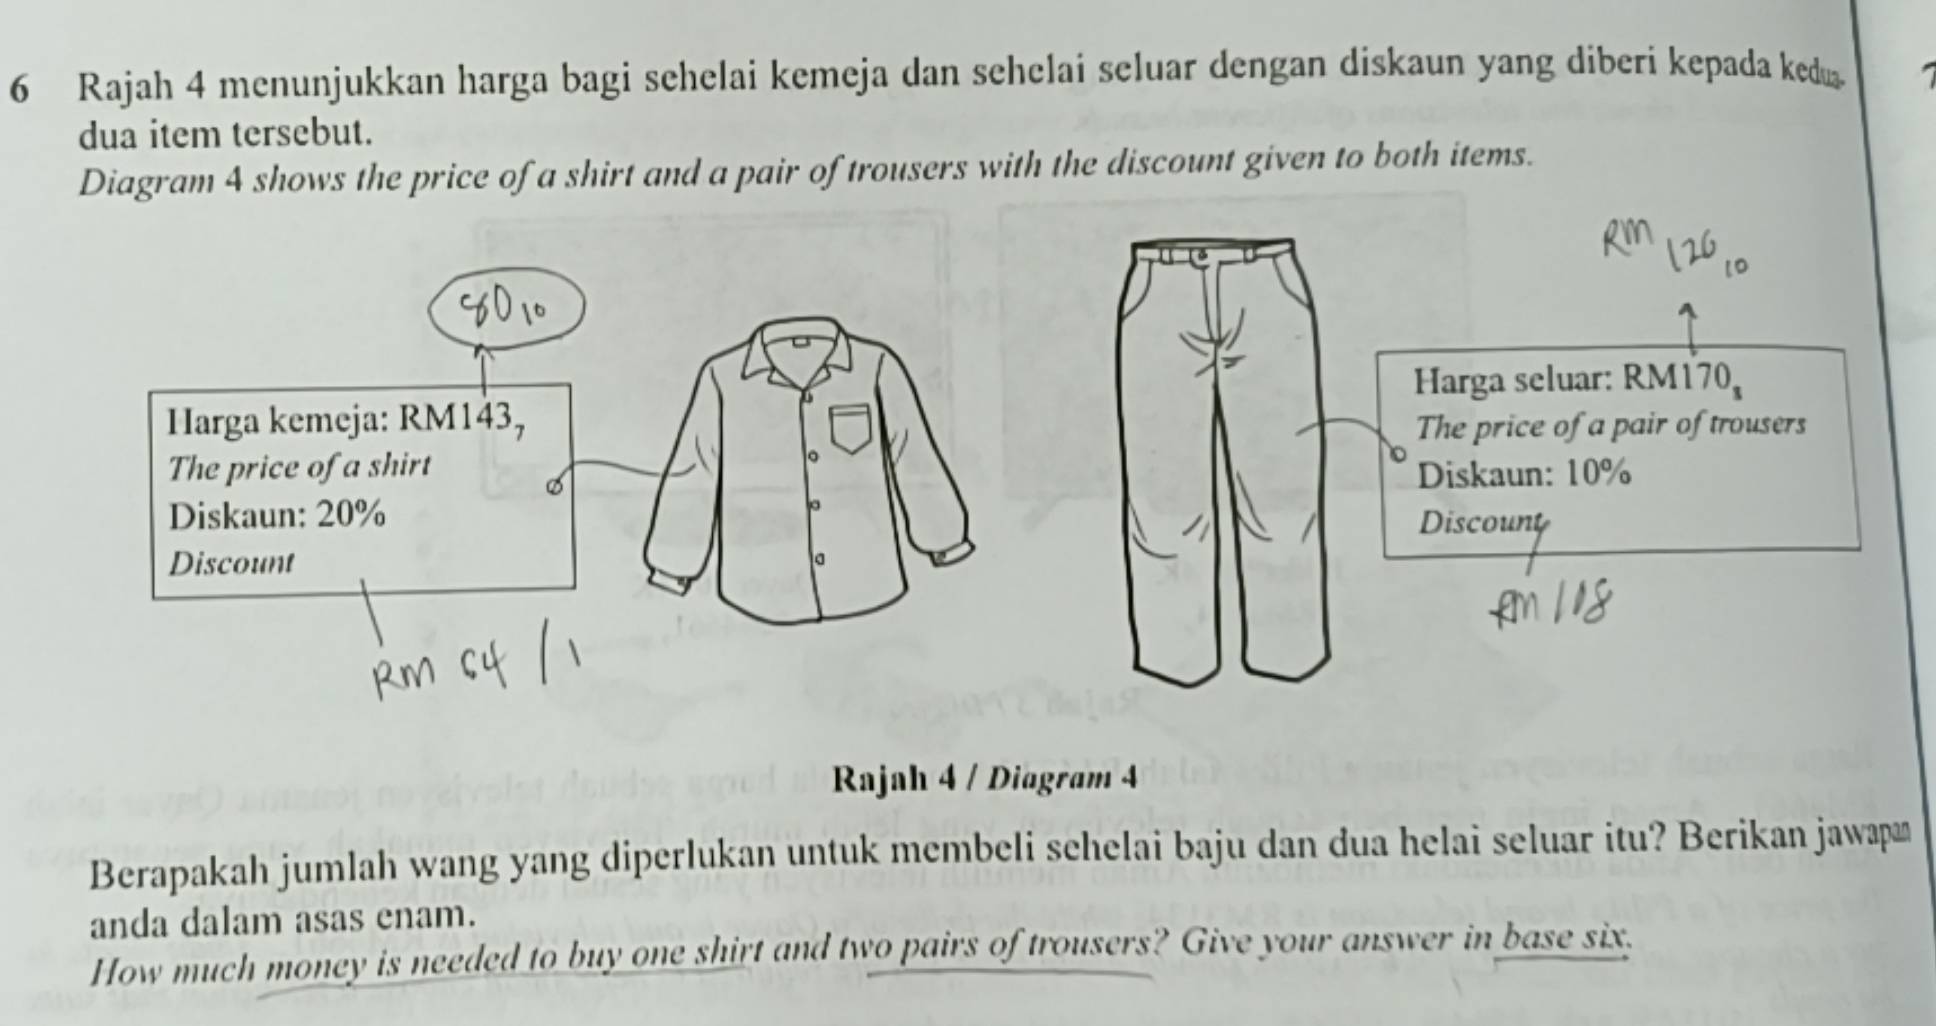 6 Rajah 4 menunjukkan harga bagi sehelai kemeja dan sehelai seluar dengan diskaun yang diberi kepada kedua-
dua item tersebut.
Diagram 4 shows the price of a shirt and a pair of trousers with the discount given to both items.
RM 126₁₀
80₁₀
Harga kemeja: RM143₇
The price of a shirt
Diskaun: 20%
Discount
RM 64 / 1
Harga seluar: RM170₈
The price of a pair of trousers
Diskaun: 10%
Discount
RM 108
Rajah 4 / Diagram 4
Berapakah jumlah wang yang diperlukan untuk membeli sehelai baju dan dua helai seluar itu? Berikan jawapan
anda dalam asas enam.
How much money is needed to buy one shirt and two pairs of trousers? Give your answer in base six.